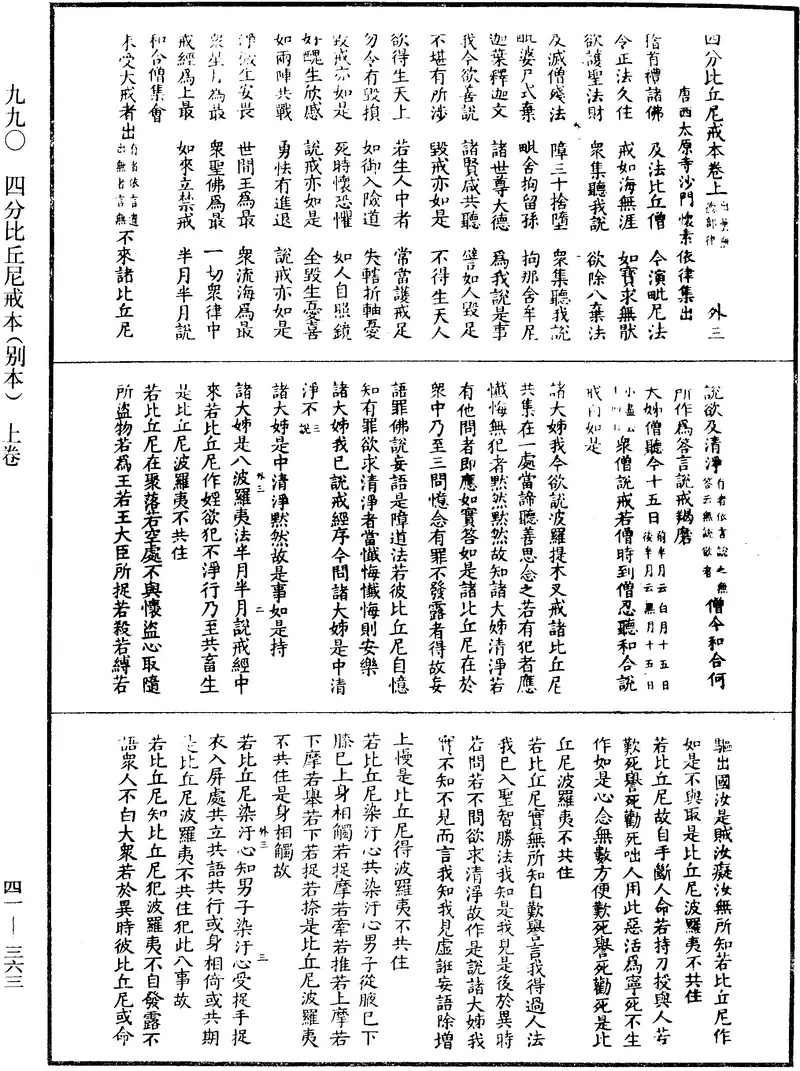 四分比丘尼戒本卷上 外三
唐西太原寺沙門懷素依律集出
稽首禮諸佛 及法比丘僧 今演毗尼法
令正法久住 戒如海無涯 如寶求無猒
欲護聖法財 衆集聽我說 欲除八棄法
及滅僧殘法 障三十捨墮 衆集聽我說
毗婆尸式棄 毗舍拘留孫 拘那含牟尼
迦葉釋迦文 諸世尊大德 爲我說是事
我今欲善說 諸賢咸共聽 譬如人毀足
不堪有所涉 毀戒亦如是 不得生天人
欲得生天上 若生人中者 常當護戒足
勿令有毀損 如御入險道 失轄折軸憂
毀戒亦如是 死時懷恐懼 如人自照鏡
好醜生欣慼 說戒亦如是 全毀生憂喜
如兩陣共戰 勇怯有進退 說戒亦如是
淨穢生安畏 世間王爲最 衆流海爲最
衆星月爲最 衆聖佛爲最 一切衆律中
戒經爲上最 如來立禁戒 半月半月說
和合僧集會
未受大戒者出有者依言遣出無者言無不來諸比丘尼
說欲及清淨有者依言說之無答云無說欲者僧今和合何
所作爲答言說戒羯磨
大姊僧聽今十五日前半月云白月十五日後半月云黑月十五日
衆僧說戒若僧時到僧忍聽和合說
戒白如是
諸大姊我今欲說波羅提木叉戒諸比丘尼
共集在一處當諦聽善思念之若有犯者應
懺悔無犯者默然默然故知諸大姊清淨若
有他問者即應如實答如是諸比丘尼在於
衆中乃至三問憶念有罪不發露者得故妄
語罪佛說妄語是障道法若彼比丘尼自憶
知有罪欲求清淨者當懺悔懺悔則安樂
諸大姊我已說戒經序今問諸大姊是中清
淨不三說
諸大姊是中清淨默然故是事如是持
外三 二
諸大姊是八波羅夷法半月半月說戒經中
來若比丘尼作婬欲犯不淨行乃至共畜生
是比丘尼波羅夷不共住
若比丘尼在聚落若空處不與懷盜心取隨
所盜物若爲王若王大臣所捉若殺若縛若
驅出國汝是賊汝癡汝無所知若比丘尼作
如是不與取是比丘尼波羅夷不共住
若比丘尼故自手斷人命若持刀授與人若
歎死譽死勸死咄人用此惡活爲寧死不生
作如是心念無數方便歎死譽死勸死是比
丘尼波羅夷不共住
若比丘尼實無所知自歎譽言我得過人法
我已入聖智勝法我知是我見是後於異時
若問若不問欲求清淨故作是說諸大姊我
實不知不見而言我知我見虛誑妄語除增
上慢是比丘尼得波羅夷不共住
若比丘尼染汙心共染汙心男子從腋已下
膝已上身相觸若捉摩若牽若推若上摩若
下摩若舉若下若捉若捺是比丘尼波羅夷
不共住是身相觸故
外三 三
若比丘尼染汙心知男子染汙心受捉手捉
衣入屏處共立共語共行或身相倚或共期
是比丘尼波羅夷不共住犯此八事故
若比丘尼知比丘尼犯波羅夷不自發露不
語衆人不白大衆若於異時彼比丘尼或命
九九〇 四分比丘尼戒本(别本) 上卷
四一—三六三